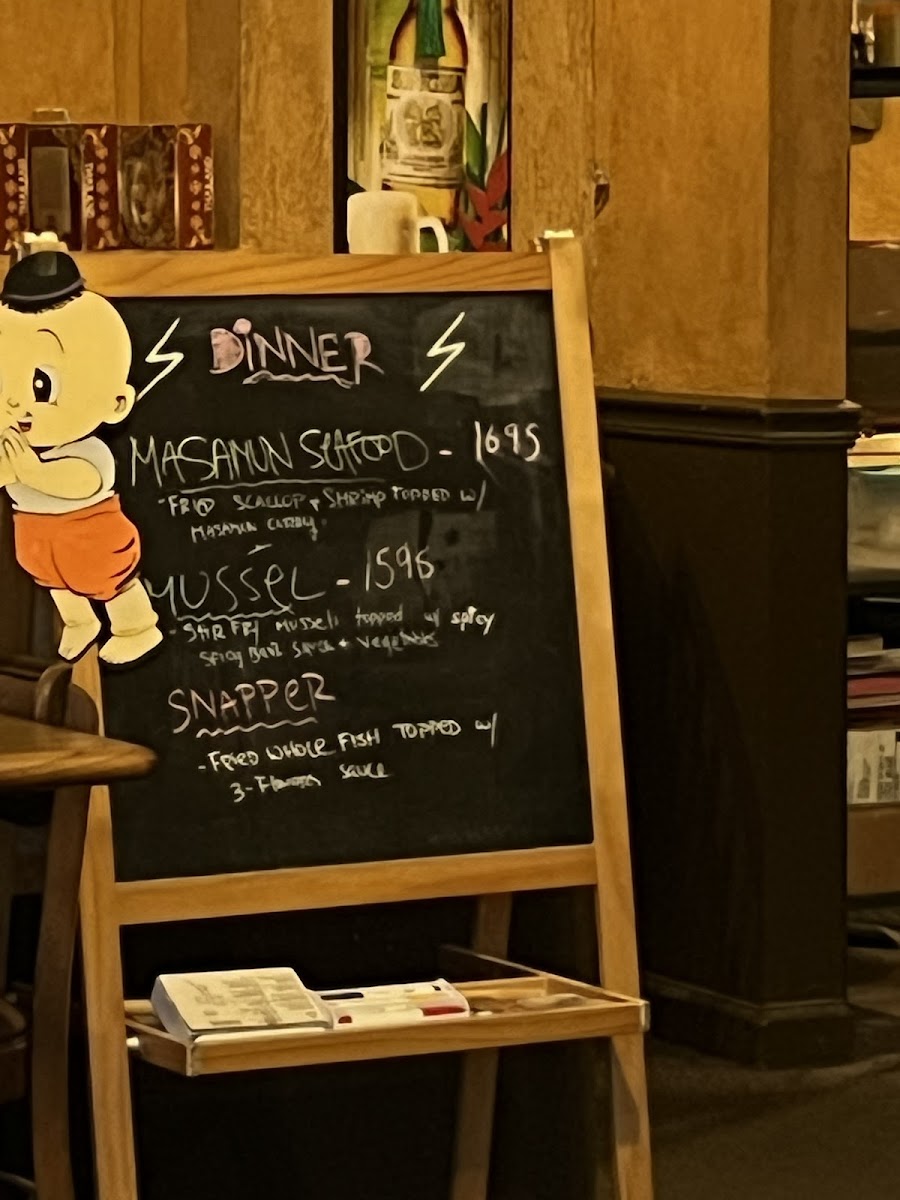 DINNER
MASAMUN SEAFOOD - 1695
- FRIED SCALLOP + SHRIMP TOPPED W/
MASAMUN CURRY.
MUSSEL - 1595
- STIR FRY Mussels topped w/ spicy
SPICY Basil Sauce + vegetables
SNAPPER
- FRIED WHOLE FISH TOPPED W/
3-Flavor sauce